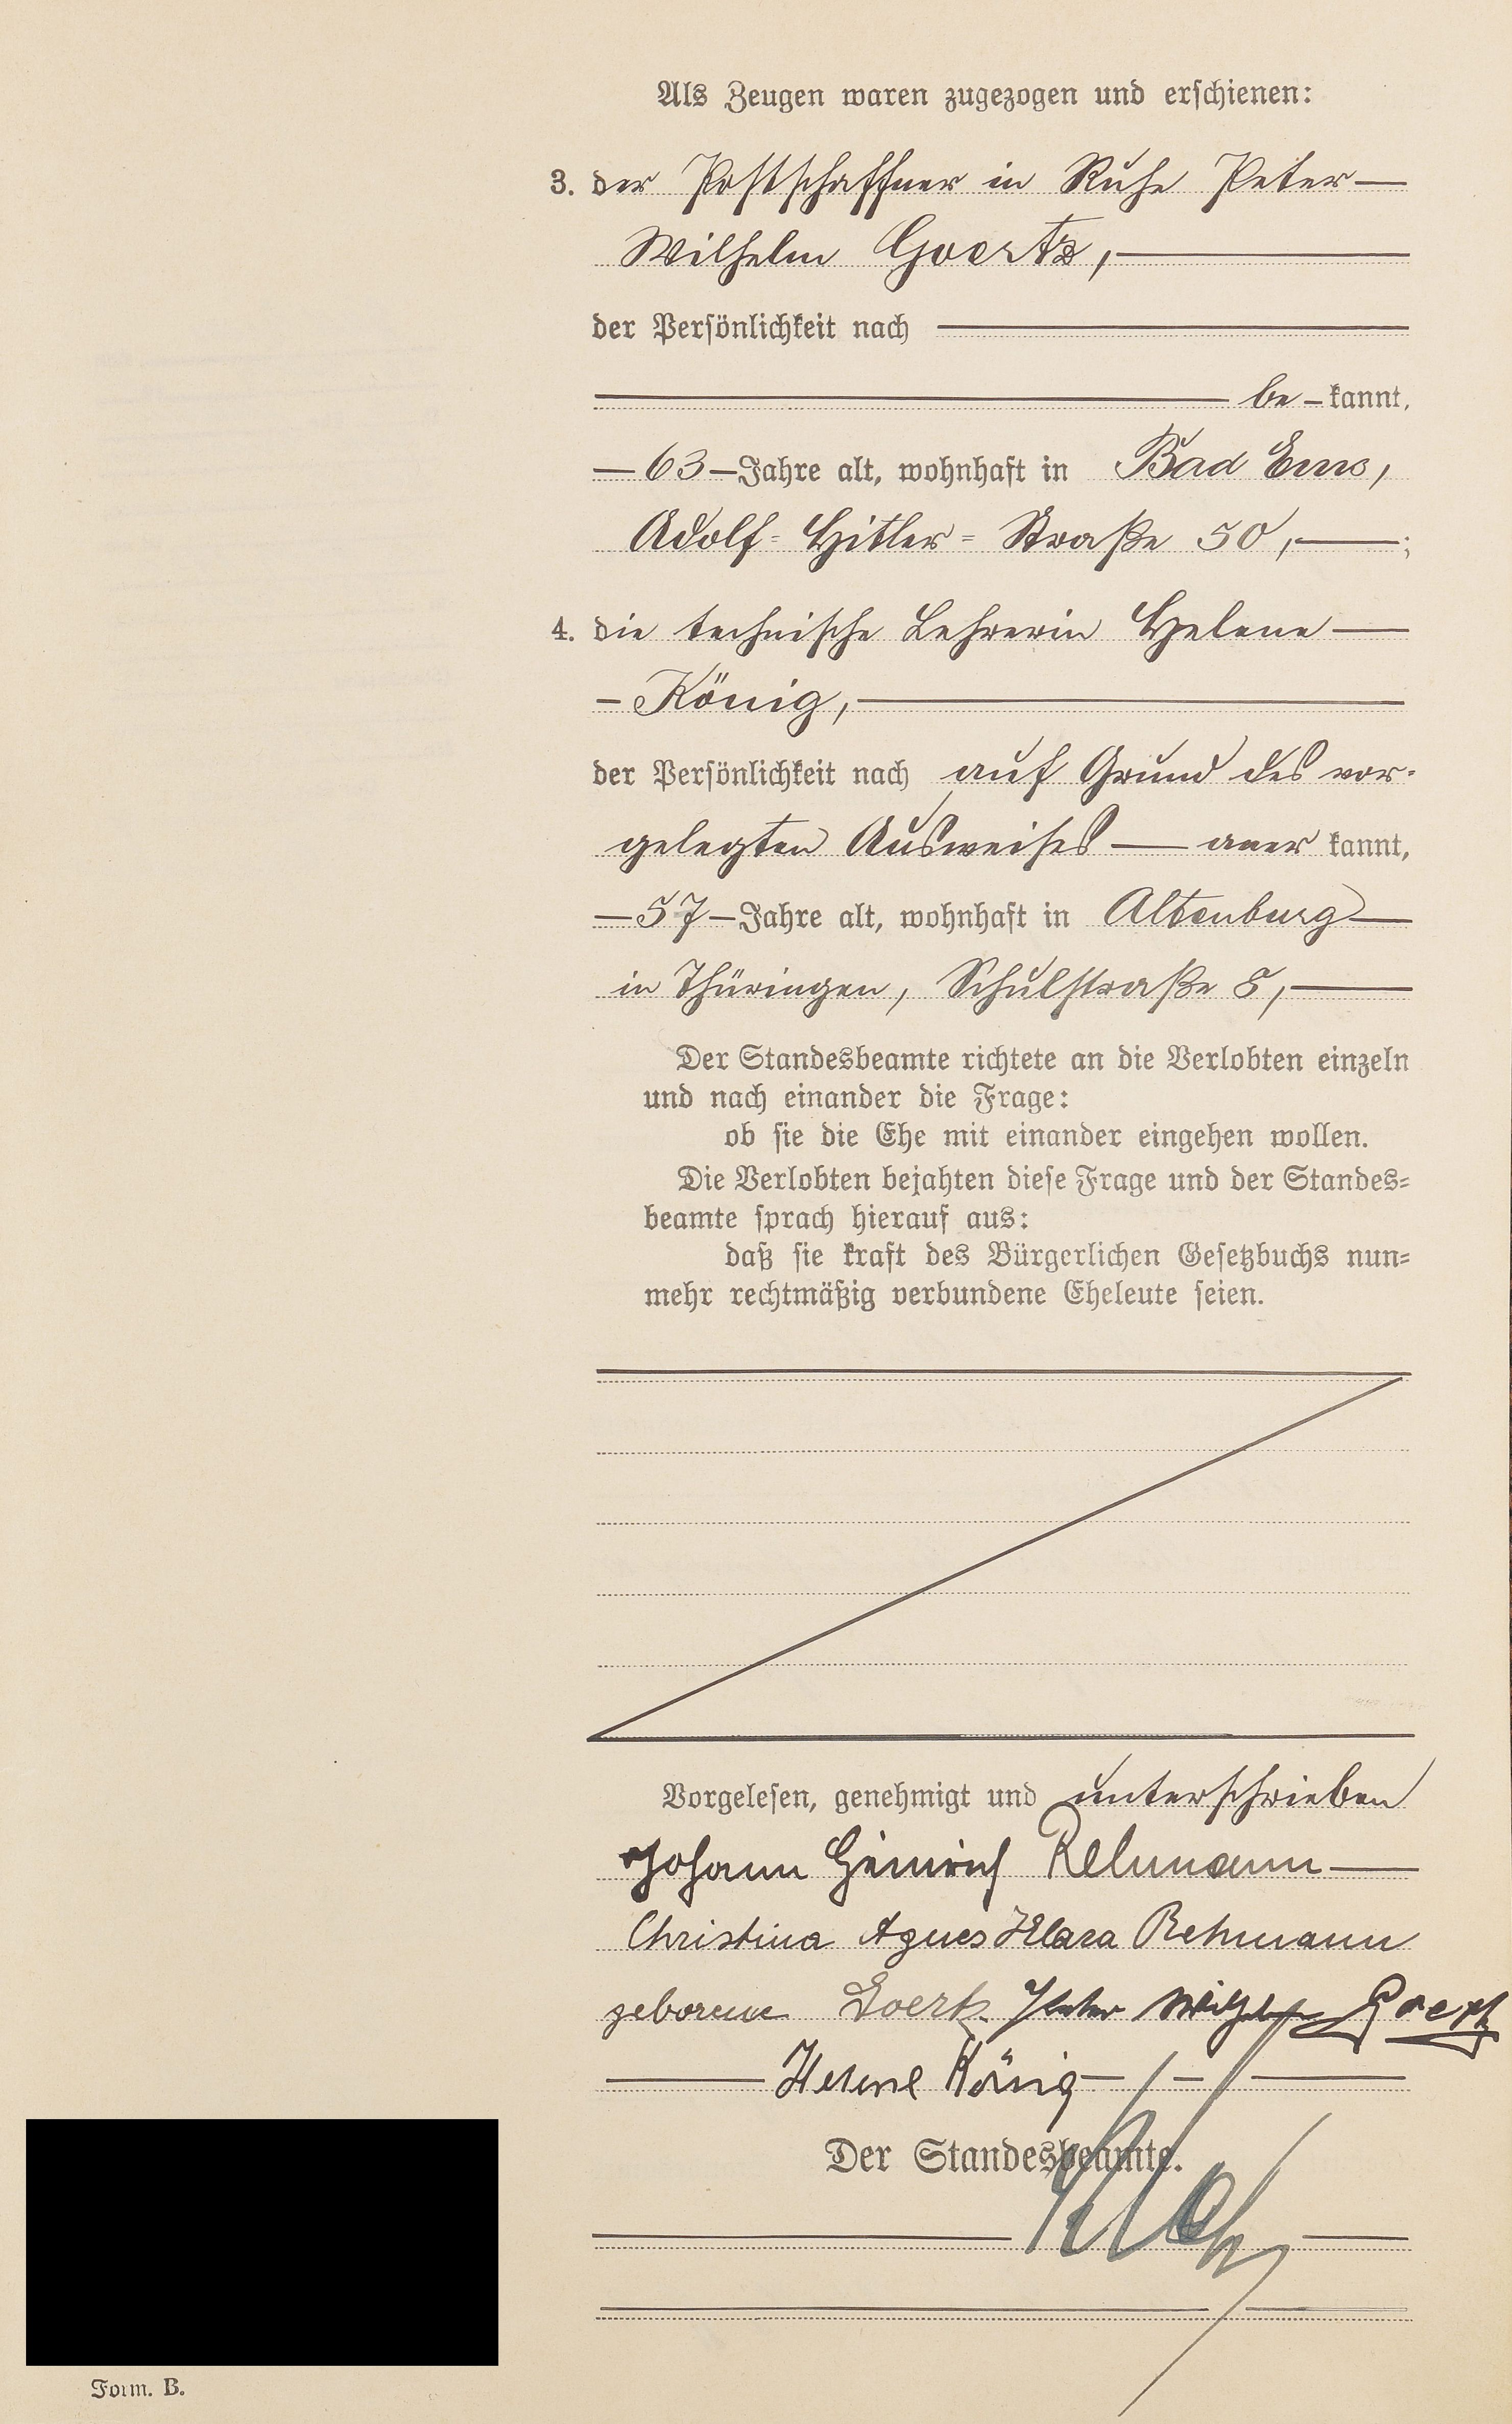 Als Zeugen waren zugezogen und erschienen:
3. der Postschaffner in Ruhe Peter —
Wilhelm Goertz, —
der Persönlichkeit nach —
— be – kannt,
— 63 — Jahre alt, wohnhaft in Bad Ems,
Adolf-Hitler-Straße 50, — ;
4. die technische Lehrerin Helene —
– König, —
der Persönlichkeit nach auf Grund des vor-
gelegten Ausweises — aner kannt,
— 57 — Jahre alt, wohnhaft in Altenburg —
in Thüringen, Schulstraße 8, —
Der Standesbeamte richtete an die Verlobten einzeln
und nach einander die Frage:
ob sie die Ehe mit einander eingehen wollen.
Die Verlobten bejahten diese Frage und der Standes-
beamte sprach hierauf aus:
daß sie kraft des Bürgerlichen Gesetzbuchs nun-
mehr rechtmäßig verbundene Eheleute seien.
Vorgelesen, genehmigt und unterschrieben
Johann Heinrich Rehmann —
Christina Agnes Klara Rehmann
geborene Goertz. Peter Wilhelm Goertz
— Helene König — — —
Der Standesbeamte.
Form. B.